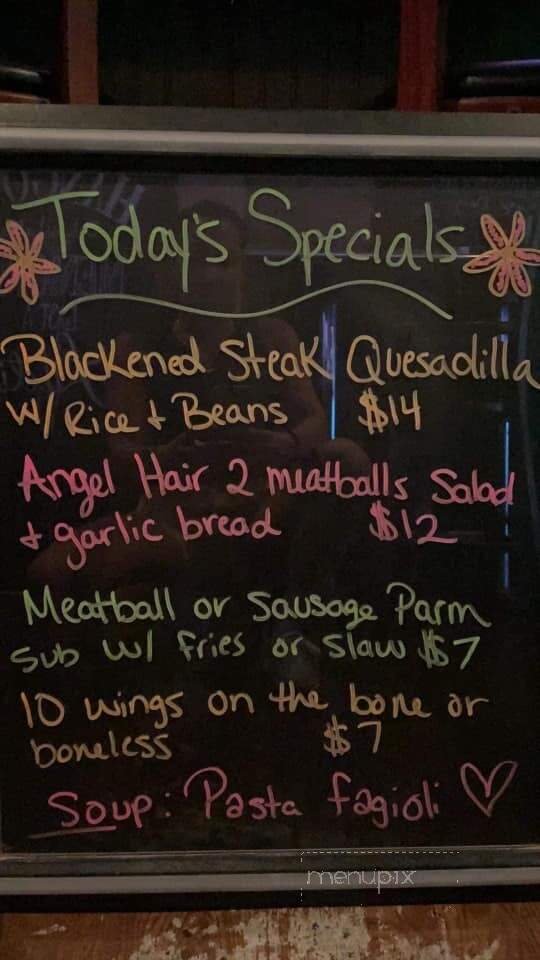 Today's Specials
Blackened Steak Quesadilla
w/ Rice + Beans $14
Angel Hair 2 meatballs Salad
+ garlic bread $12
Meatball or Sausage Parm
Sub w/ fries or slaw $7
10 wings on the bone or
boneless $7
Soup: Pasta fagioli
menupix